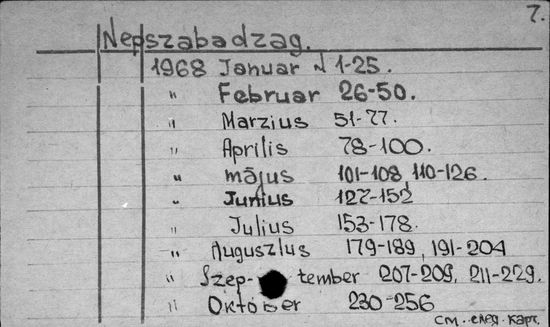 7.
Nepszabadzag.
1968 Januar № 1-25.
" Februar 26-50.
" Marzius 51-77.
" Aprilis 78-100.
" május 101-108 110-126.
" Junius 127-152
" Julius 153-178.
" Auguszlus 179-189, 191-204
" Szep- tember 207-209, 211-229.
" Október 230-256
см. след. карт.